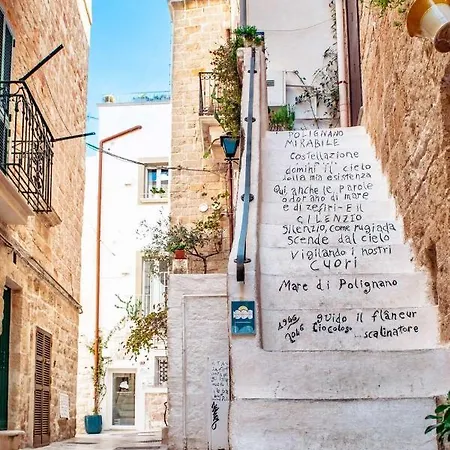 POLIGNANO
MIRABILE
Costellazione
domini il cielo
della mia esistenza
Qui anche le parole
odorano di mare
e di zefiri - E il
CILENZIO
Silenzio, come rugiada
Scende dal cielo
Vigilando i nostri
CUORI
Mare di Polignano
Guido
il flâneur
...scalinatore